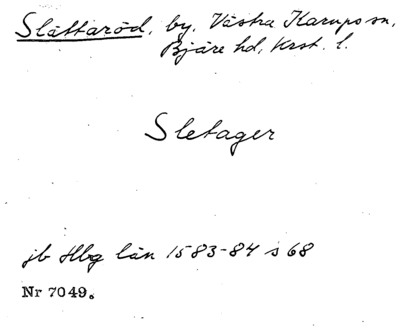 Slättaröd, by, Västra Karups sn,
Bjäre hd, Krst. l.
Sletager
jb Hbg län 1583-84 s 68
Nr 7049.